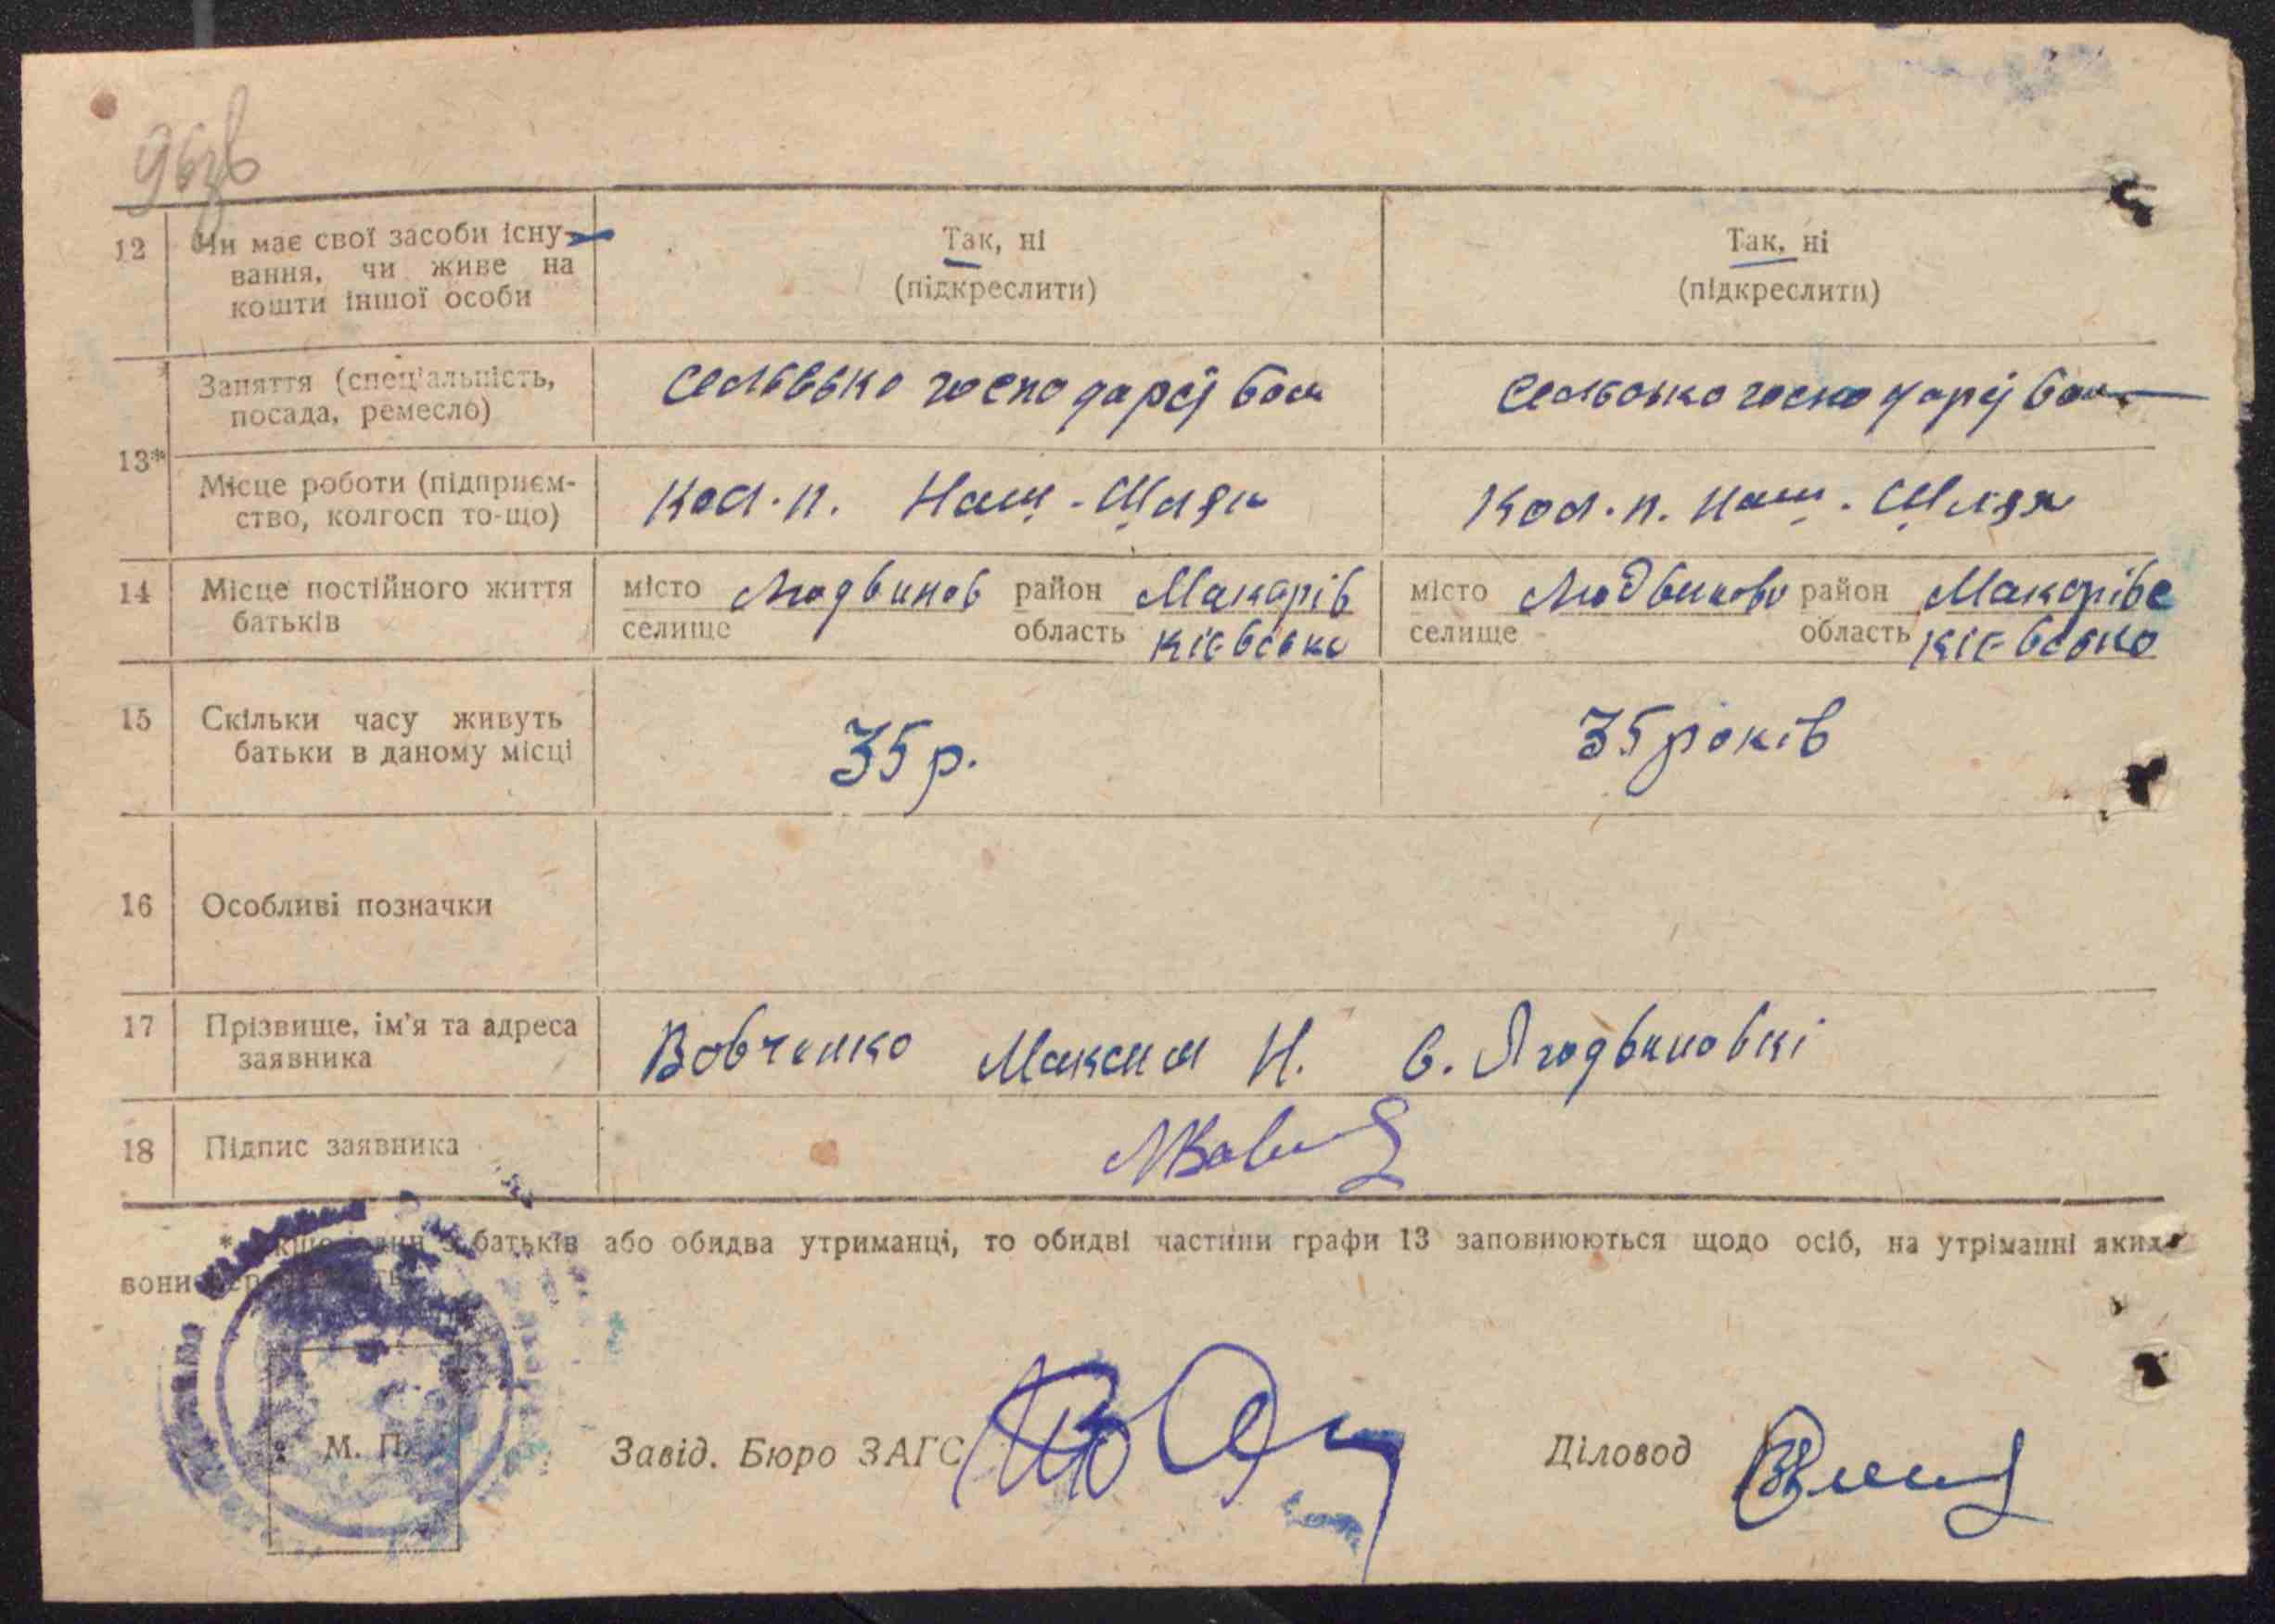 96зв
12 Чи має свої засоби існу-
вання, чи живе на
кошти іншої особи
Так, ні
(підкреслити)
Так, ні
(підкреслити)
13*
Заняття (спеціальність,
посада, ремесло)
Місце роботи (підприєм-
ство, колгосп то-що)
Кол.п. Наш-Шлях
Кол.п. Наш-Шлях
14 Місце постійного життя
батьків
місто Людвинов район Макарів
селище область Кієвська
місто район Макарівс
селище область Кієвсько
15 Скільки часу живуть
батьки в даному місці
35 р.
35 років
16 Особливі позначки
17 Прізвище, ім'я та адреса
заявника
Вовченко Максим Н. с. Людвиновкі
18 Підпис заявника
батьків або обидва утриманці, то обидві частини графи 13 заповнюються щодо осіб, на утріманні яких
вони
М. П.
Завід. Бюро ЗАГС
Діловод